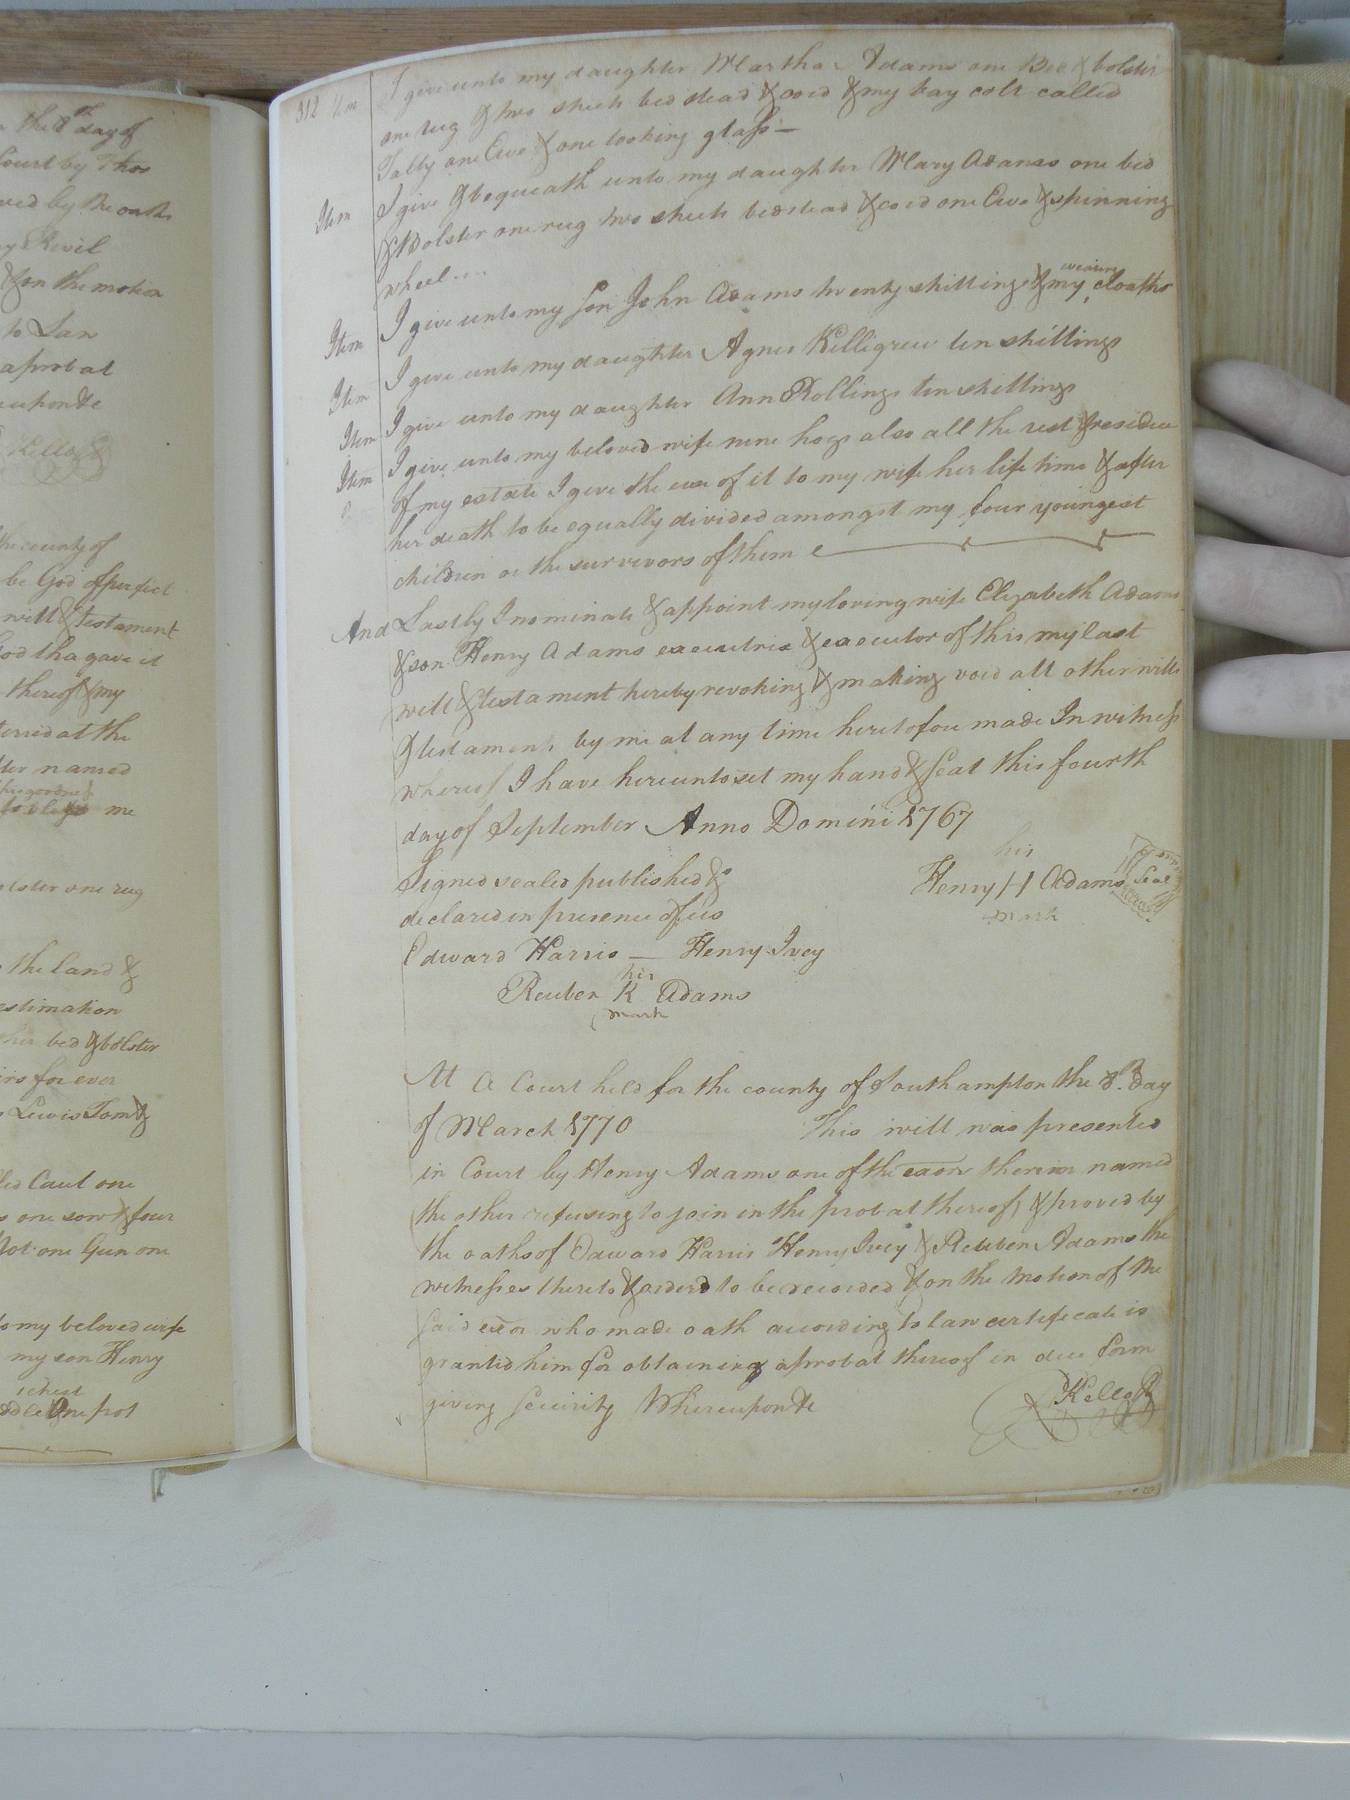 n the 8th day of
Court by Thos
ved by the oaths
y Revil
& on the motion
to Law
aprobat
reupon &c
Kello C
the county of
be God of perfect
will & Testament
God tha gave it
thereof & my
terred at the
ter named
me
olster one rug
the land &
estimation
her bed & bolster
irs for ever
Lewis Tom &
led Caul one
s one sow & four
pot one Gun one
to my beloved wife
my son Henry
chest
one pot
312 Item I give unto my daughter Martha Adams one Bed & bolster
one rug & two sheets bed stead & cord & my bay colt called
one Ewe & one looking glass —
Item I give & bequeath unto my daughter Mary Adams one bed
& Bolster one rug two sheets bedstead & cord one Ewe & spinning
wheel ...
Item I give unto my son John Adams twenty shillings & my wearing cloaths
Item I give unto my daughter Agnes Killigrew ten shillings
Item I give unto my daughter Ann Rollings ten shillings
Item I give unto my beloved wife nine hogs also all the rest & residue
of my estate I give the use of it to my wife her life time & after
her death to be equally divided amongst my four youngest
children or the survivors of them
And Lastly I nominate & appoint my loving wife Elizabeth Adams
& son Henry Adams executrix & executor of this my last
will & testament hereby revoking & making void all other wills
& testaments by me at any time heretofore made In witness
whereof I have hereunto set my hand & seal this fourth
day of September Anno Domini 1767
Signed sealed published &
declared in presence of us
his
Henry H Adams Seal
mark
Edward Harris — Henry Ivey
his
Reuben K Adams
mark
At a Court held for the county of Southampton the 8th Day
of March 1770 This will was presented
in Court by Henry Adams one of the exors therein named
the other refusing to join in the probat thereof, & proved by
the oaths of Edward Harris Henry Ivey & Reuben Adams the
witnesses thereto & orderd to be recorded & on the motion of the
said exor who made oath according to law certificate is
granted him for obtaining aprobat thereof in due form
giving security Whereupon &c
Kello C